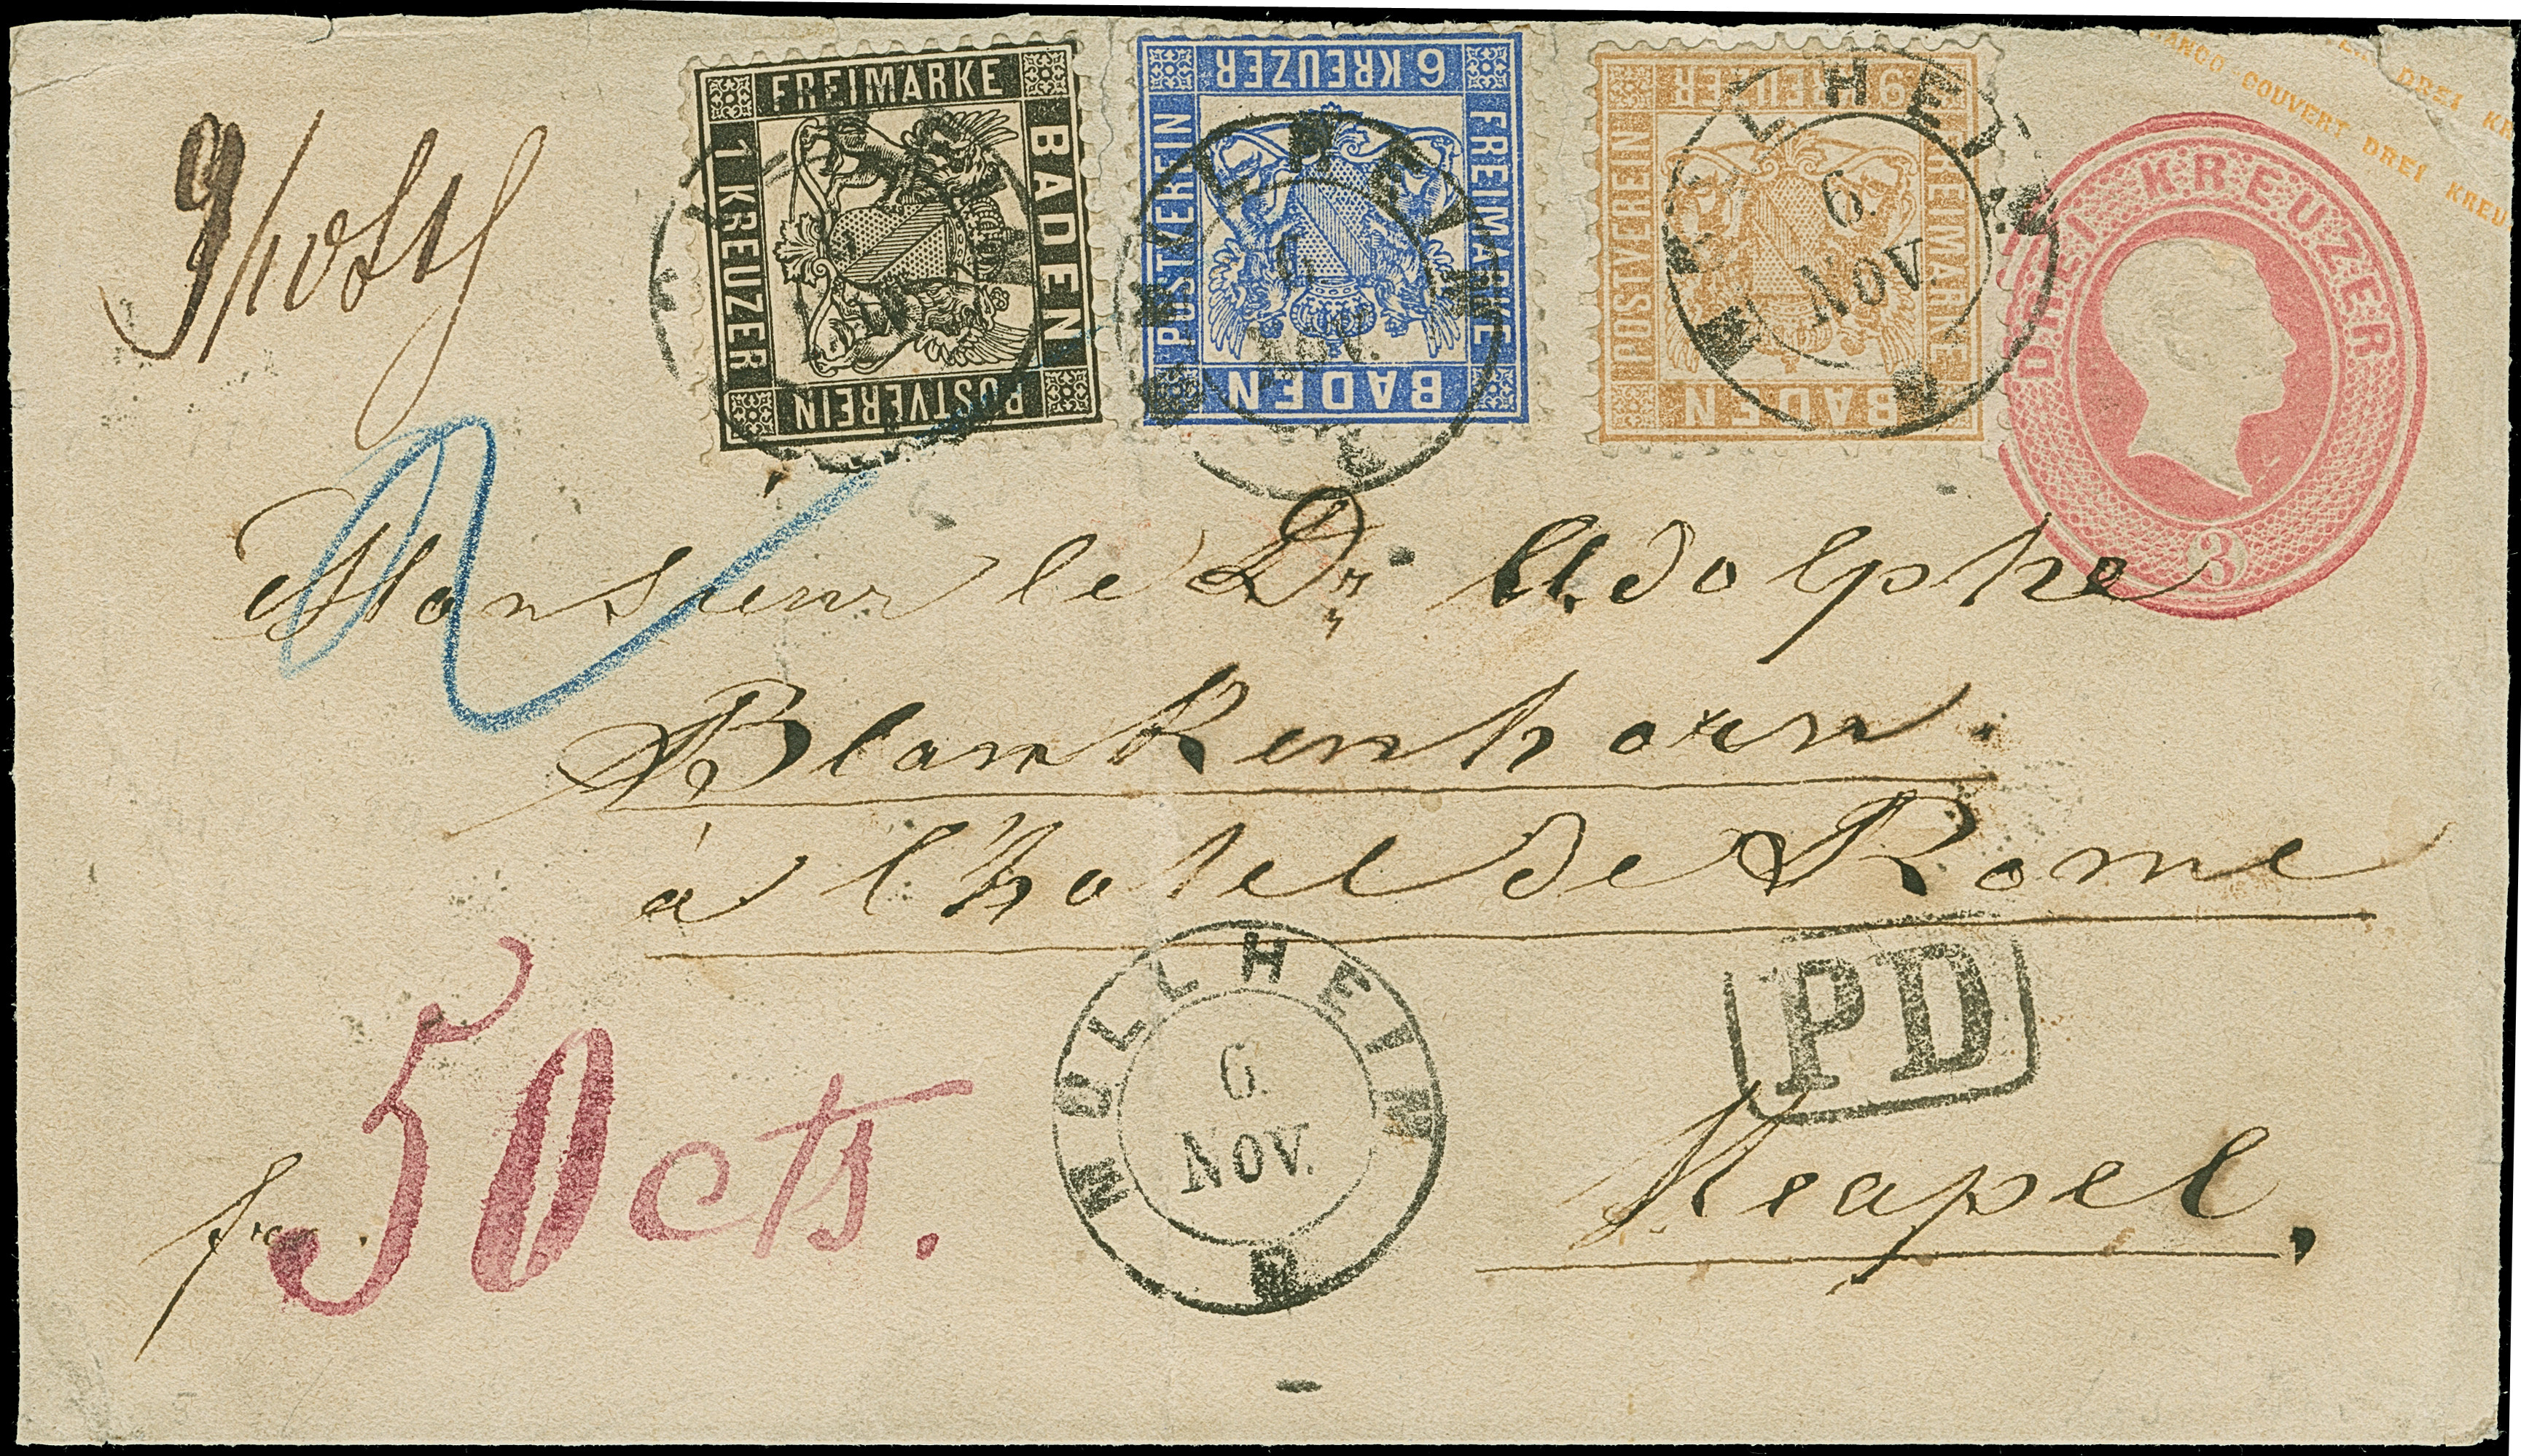 FREIMARKE
BADEN
POSTVEREIN
1 KREUZER
6 KREUZER
FREIMARKE
BADEN
POSTVEREIN
9 KREUZER
FREIMARKE
BADEN
POSTVEREIN
FRANCO-COUVERT DREI KREU
DREI KR
DREI KREUZER
3
6
NOV.
MÜLLHEIM
6.
NOV.
Monsieur le Dr Adolphe
Blankenhorn.
à l'hotel de Rome
PD
MÜLLHEIM
6.
NOV.
50 cts.
fr.
Neapel.